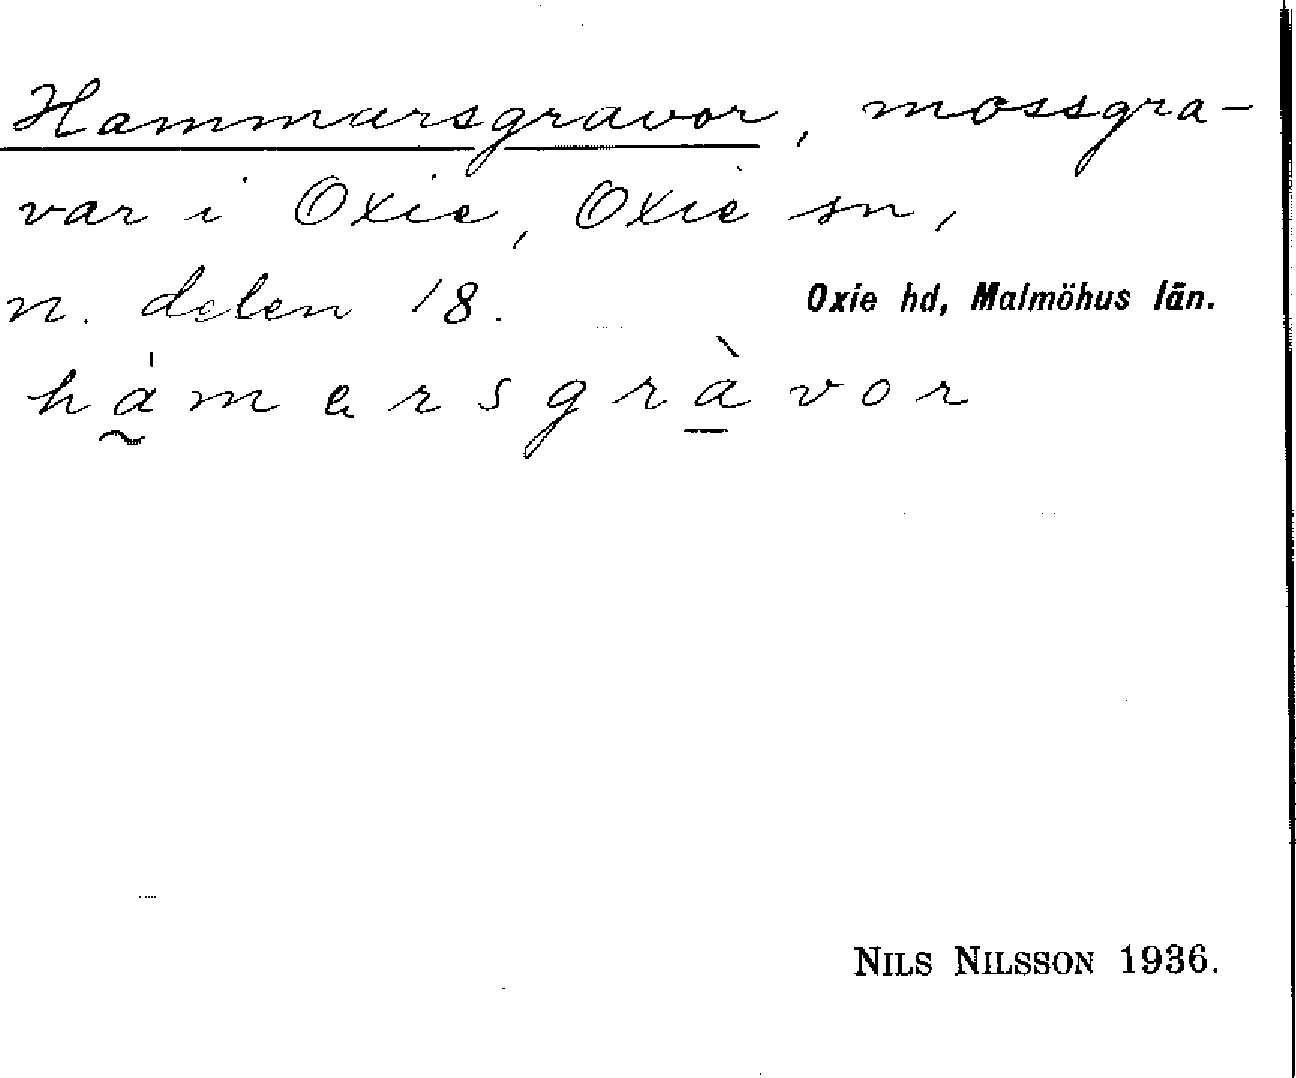 Hammarsgravor, mossgra-
var i Oxie, Oxie sn,
n. delen 18. Oxie hd, Malmöhus län.
hámarsgràvor
NILS NILSSON 1936.